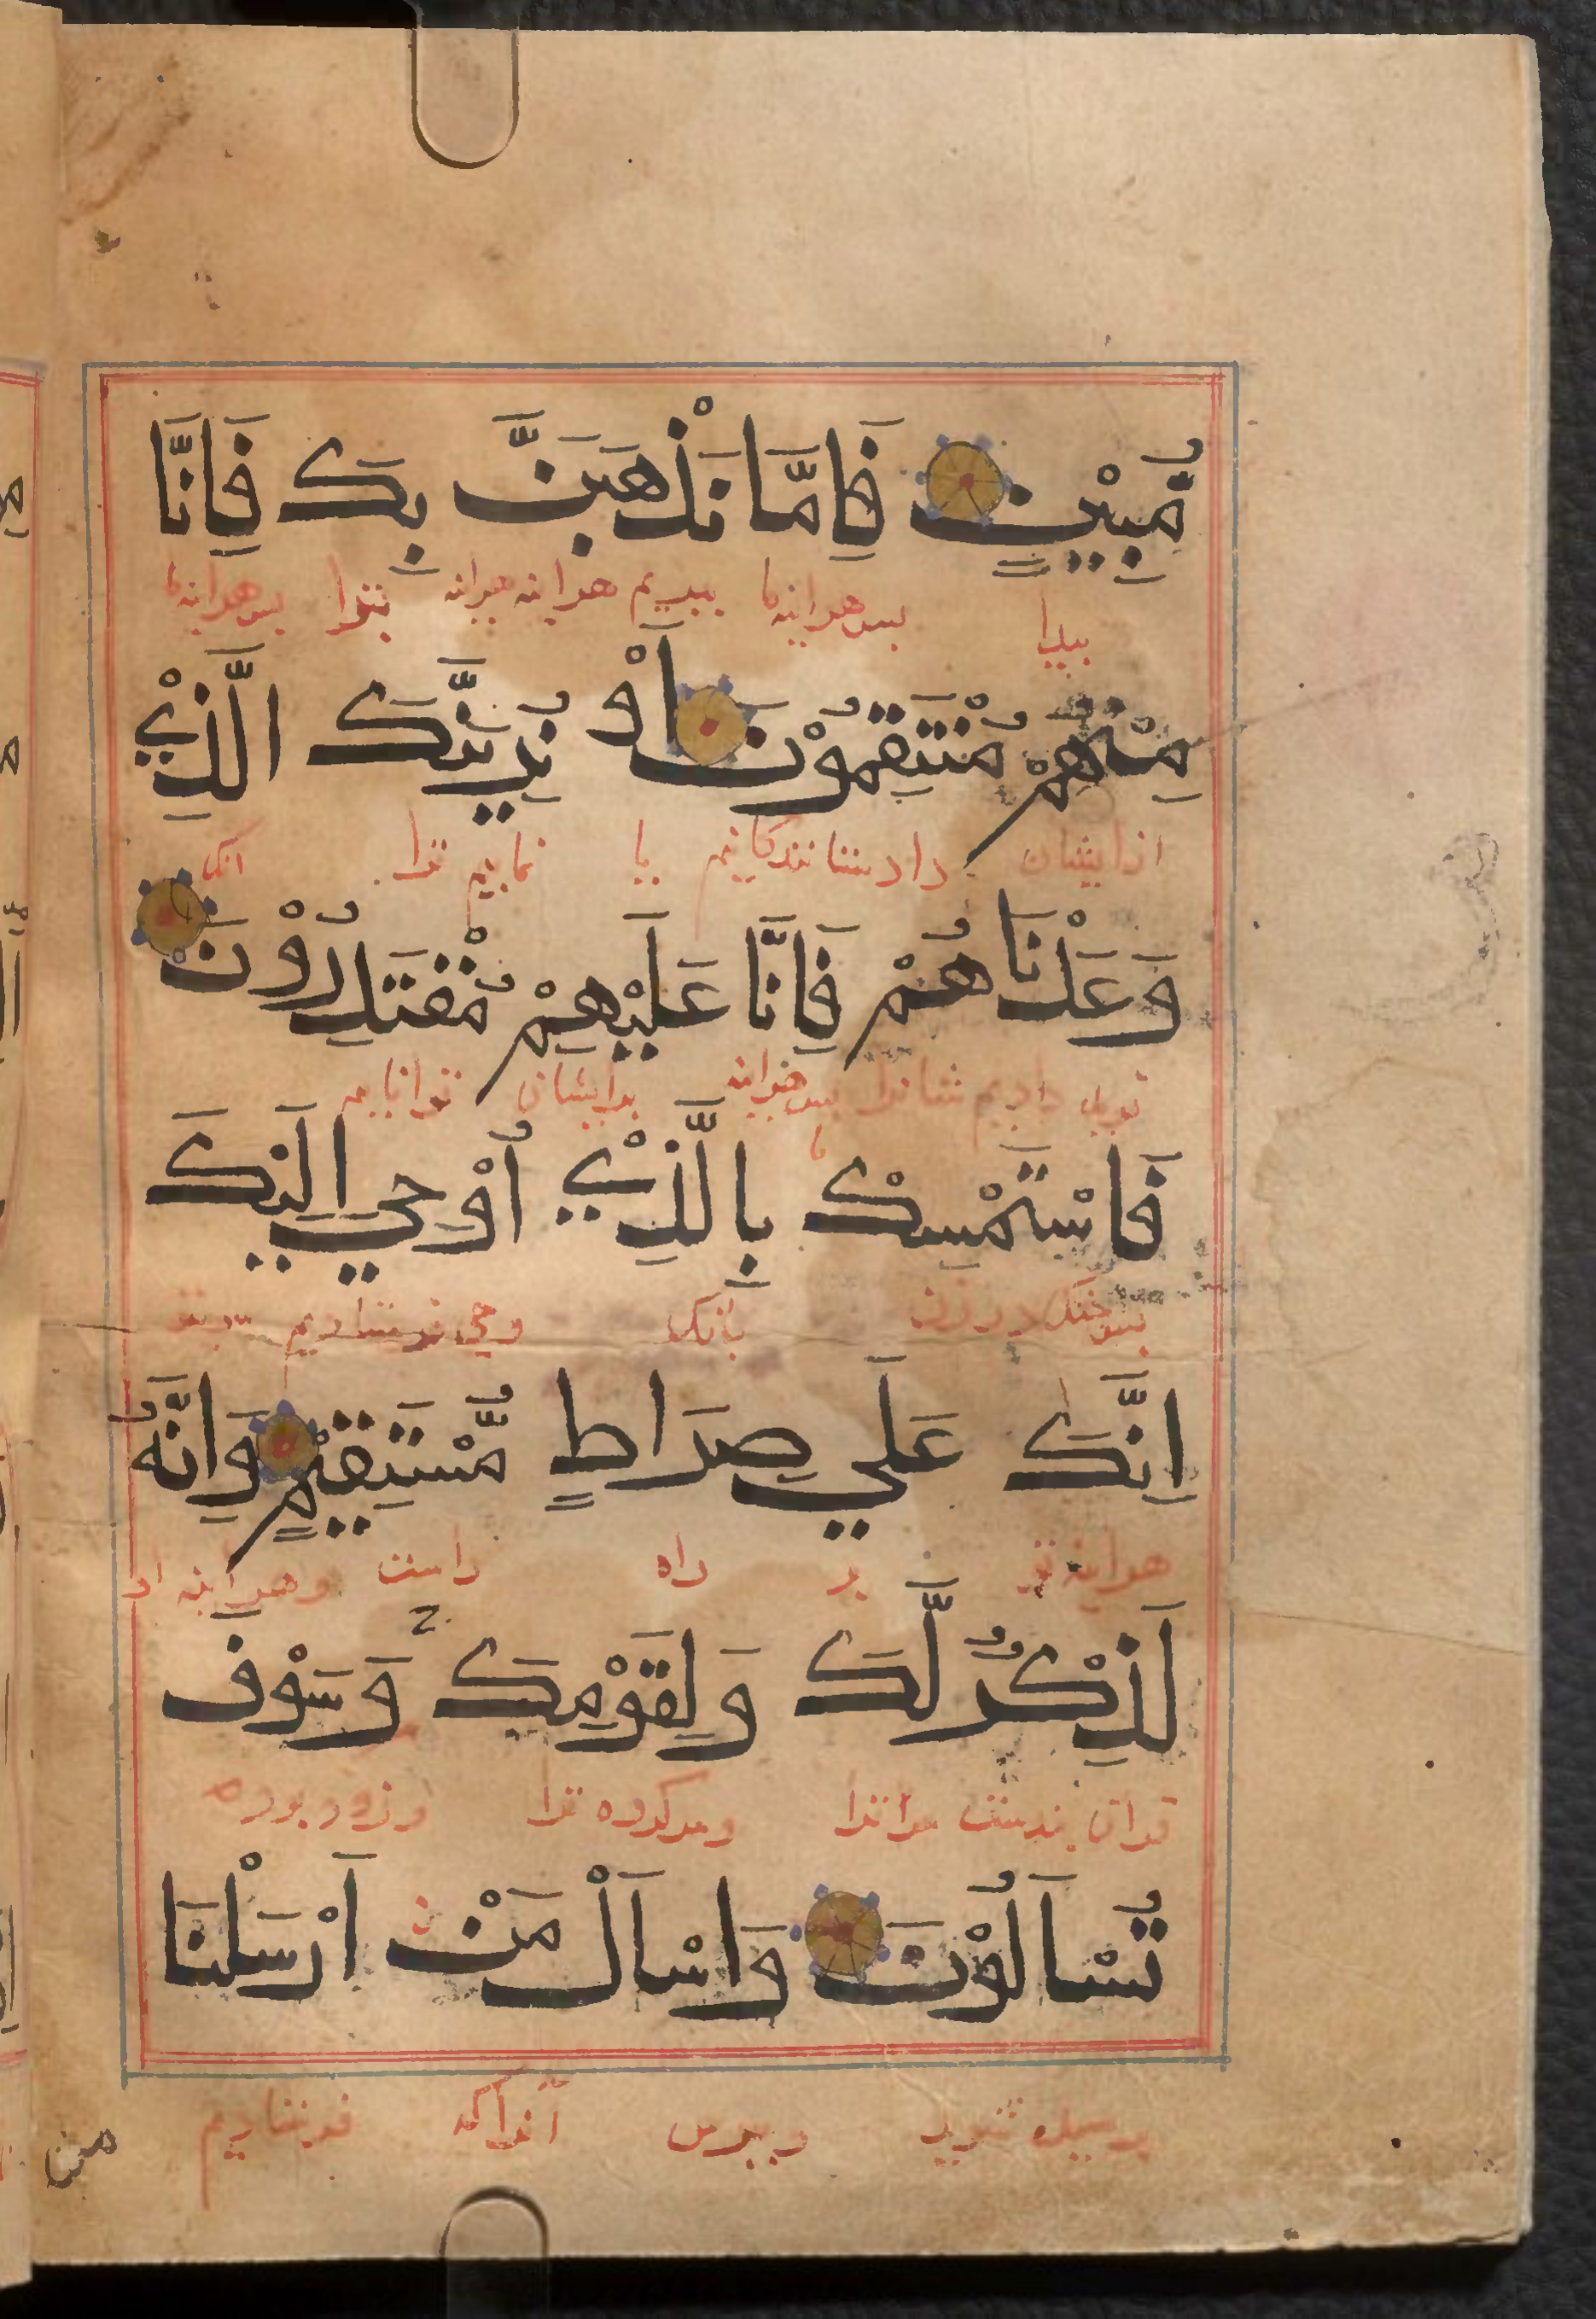 مُّبِيْنٍ فَاِمَّا نَذْهَبَنَّ بِكَ فَاِنَّا
بیدا پس هراینه ما ببریم هراینه هراینه بترا پس هراینه ما
مِنْهُمْ مُنْتَقِمُوْنَ اَوْ نُرِيَنَّكَ الَّذِيْ
ازایشان داد ستانندکانیم یا نماییم ترا انک
وَعَدْنَاهُمْ فَاِنَّا عَلَيْهِمْ مُّقْتَدِرُوْنَ
دادیم پس هراینه ما برایشان توانایم
فَاسْتَمْسِكْ بِالَّذِيْ اُوْحِيَ اِلَيْكَ
پس جنک در زن بانک وحی فرستادیم
اِنَّكَ عَلَي صِرَاطٍ مُّسْتَقِيْمٍ وَاِنَّهُ
هراینه تو بر راه راست وهراینه او
لَذِكْرٌ لَّكَ وَلِقَوْمِكَ وَسَوْفَ
قران پندست مرا ترا ومرکروه ترا وزود بود
تُسْاَلُوْنَ وَاسْاَلْ مَنْ اَرْسَلْنَا
پرسیده شوید وبپرس آنراکه فرستادیم
من